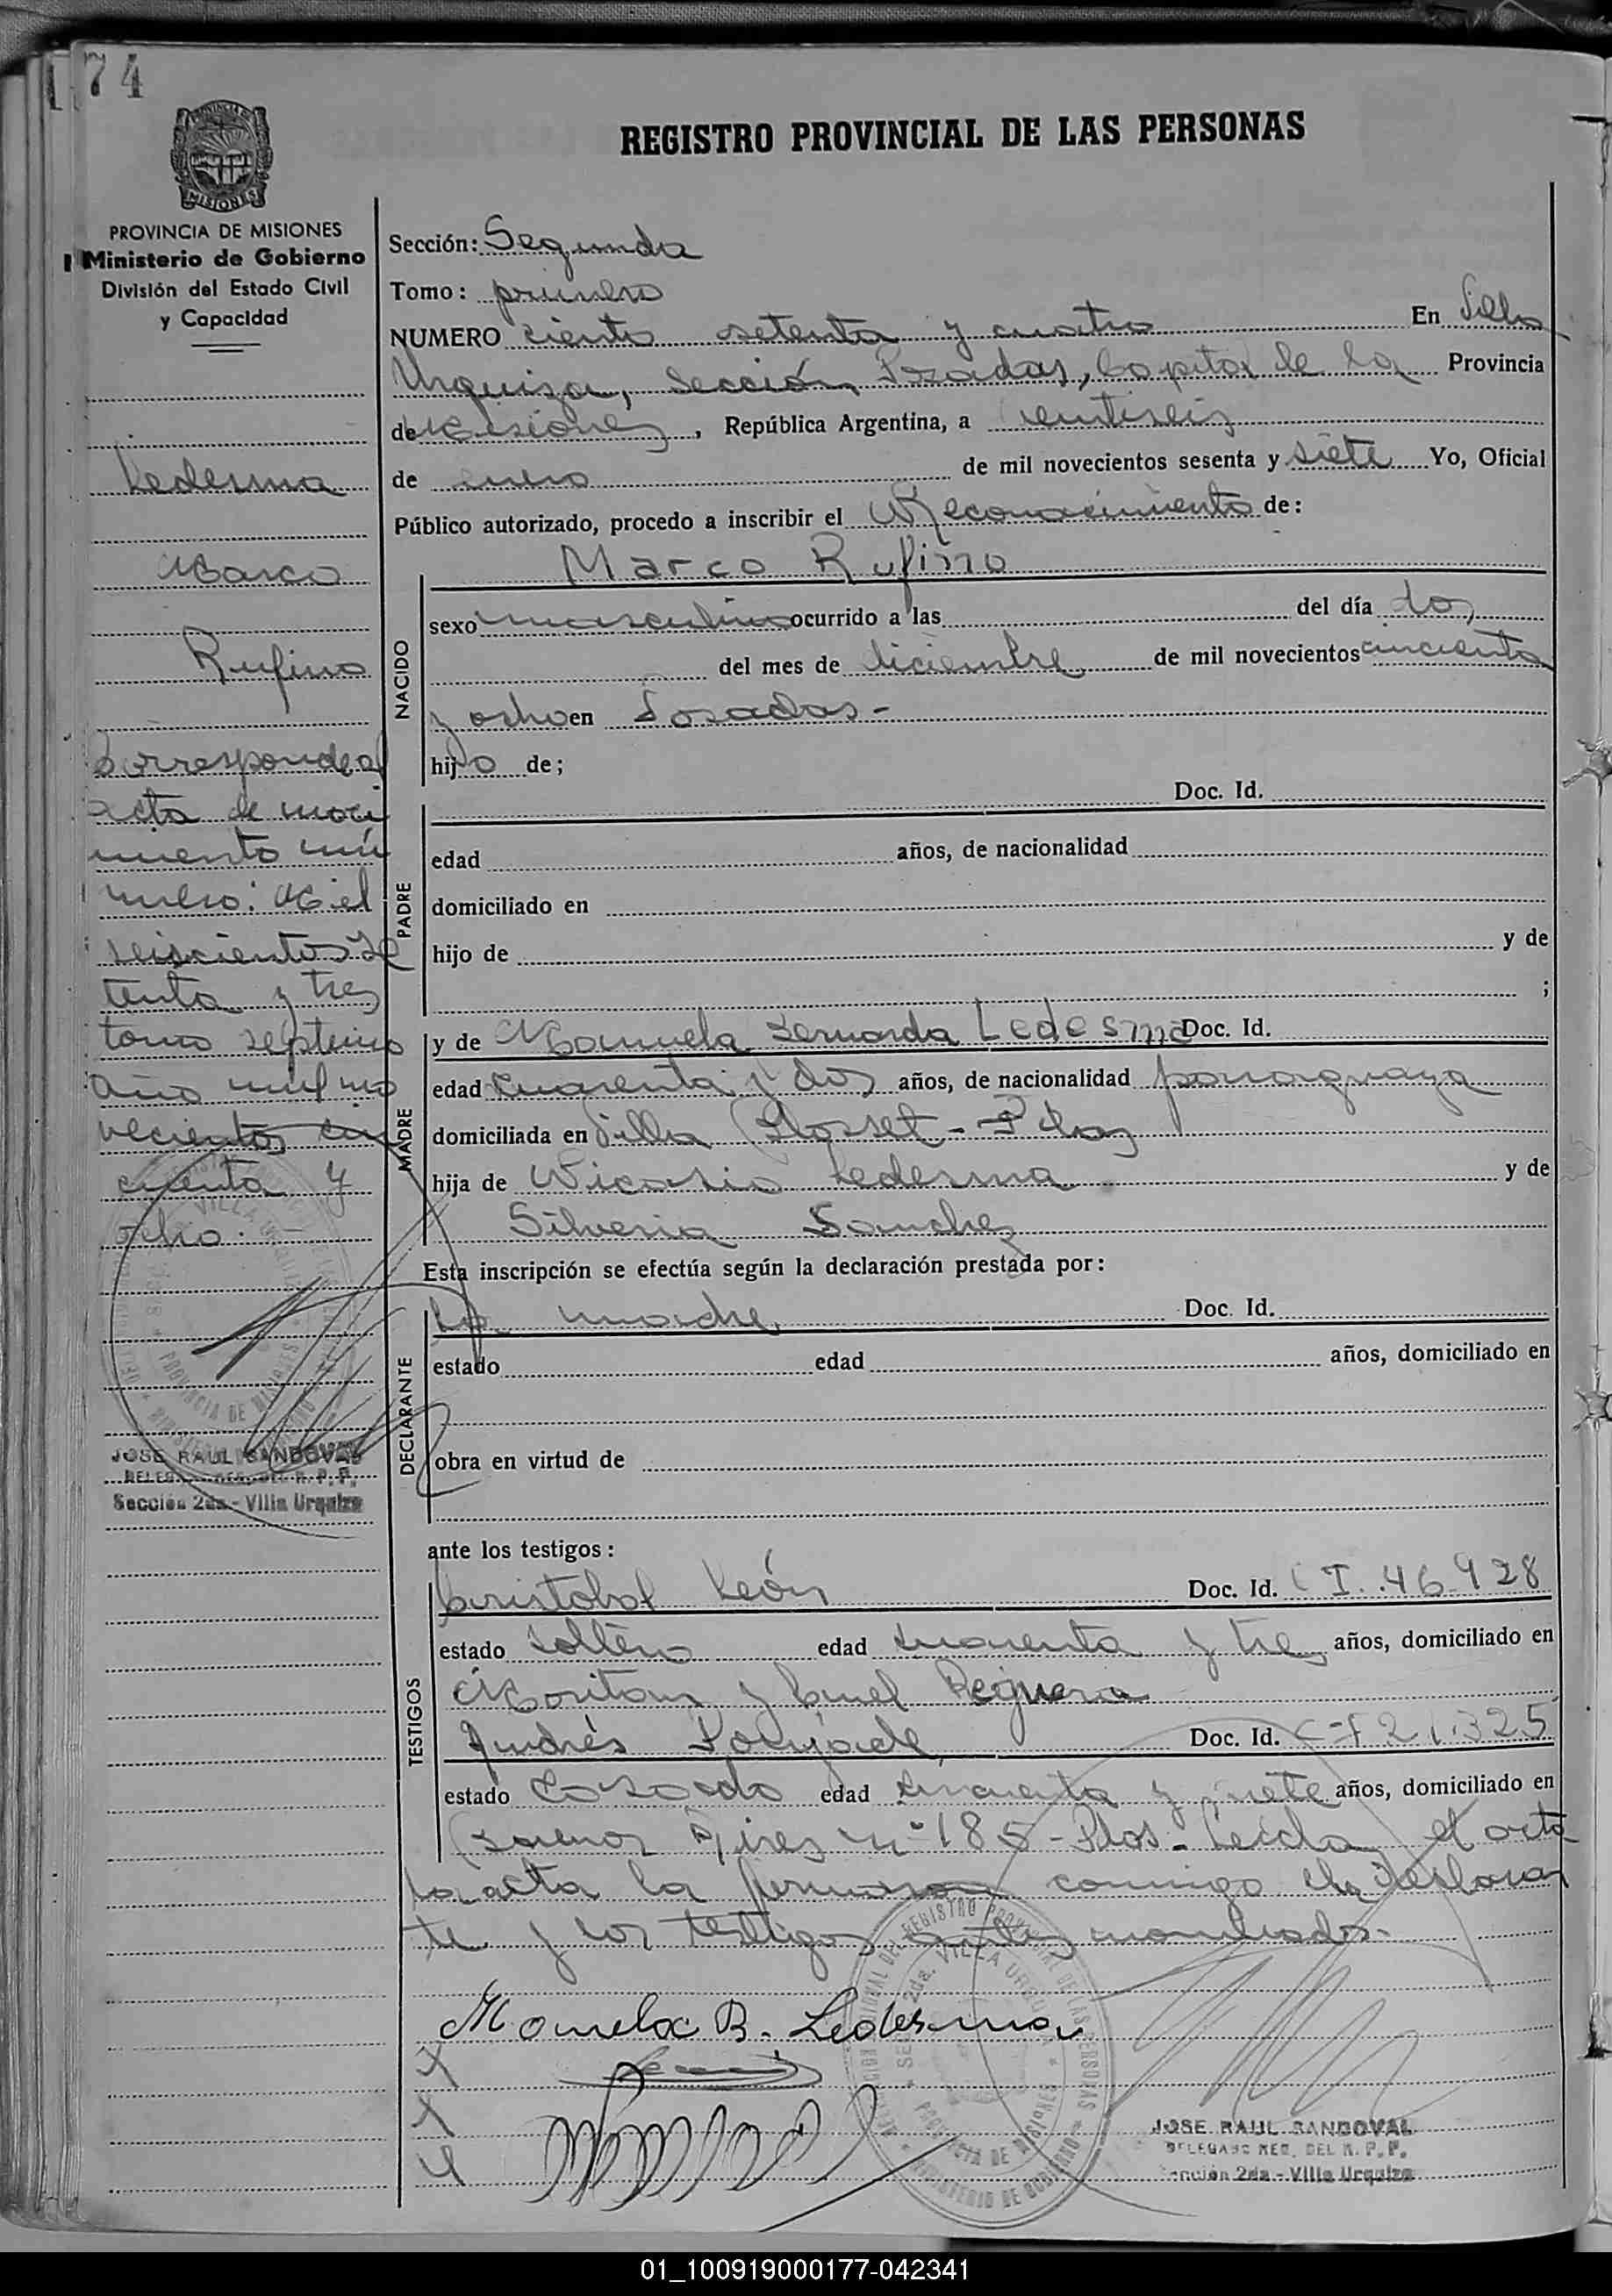 174
MISIONES
PROVINCIA DE MISIONES
Ministerio de Gobierno
División del Estado Civil
y Capacidad
REGISTRO PROVINCIAL DE LAS PERSONAS
Sección: Segunda
Tomo: primero
NUMERO ciento setenta y cuatro En Villa
Urquiza, Sección Posadas, Capital de la Provincia
de Misiones, República Argentina, a veintiseis
de enero de mil novecientos sesenta y siete Yo, Oficial
Público autorizado, procedo a inscribir el Reconocimiento de:
NACIDO
Marco Rufino
sexo masculino ocurrido a las del día dos
del mes de diciembre de mil novecientos cincuenta
y ocho en Posadas-
hijo de;
PADRE
Doc. Id.
edad años, de nacionalidad
domiciliado en
hijo de y de
;
MADRE
y de Manuela Bernarda Ledesma Doc. Id.
edad cuarenta y dos años, de nacionalidad paraguaya
domiciliada en Villa - Pdas
hija de Ledesma y de
Silveria Sanchez
Esta inscripción se efectúa según la declaración prestada por:
DECLARANTE
La madre Doc. Id.
estado edad años, domiciliado en
obra en virtud de
ante los testigos:
TESTIGOS
Cristobal León Doc. Id. C I. 46.928
estado soltero edad cuarenta y tres años, domiciliado en
y Cnel Reguera
Andrés Doc. Id. C-I 21.325
estado casado edad y siete años, domiciliado en
Buenos Aires nº 185 - Pdas. Leida el acta
la acta la conmigo la declaran
te y los testigos antes nombrados.-
Manuela B. Ledesma
JOSE RAUL SANDOVAL
DELEGADO REG. DEL R. P. P.
Sección 2da - Villa Urquiza
Ledesma
Marco
Rufino
Corresponde al
acta de naci
miento nú
mero: Mil
seiscientos se
tenta y tres
tomo septimo
año mil no
vecientos cin
cuenta y
ocho.-
JOSE RAUL SANDOVAL
DELEGADO REG. DEL R. P. P.
Sección 2da - Villa Urquiza
01_100919000177-042341